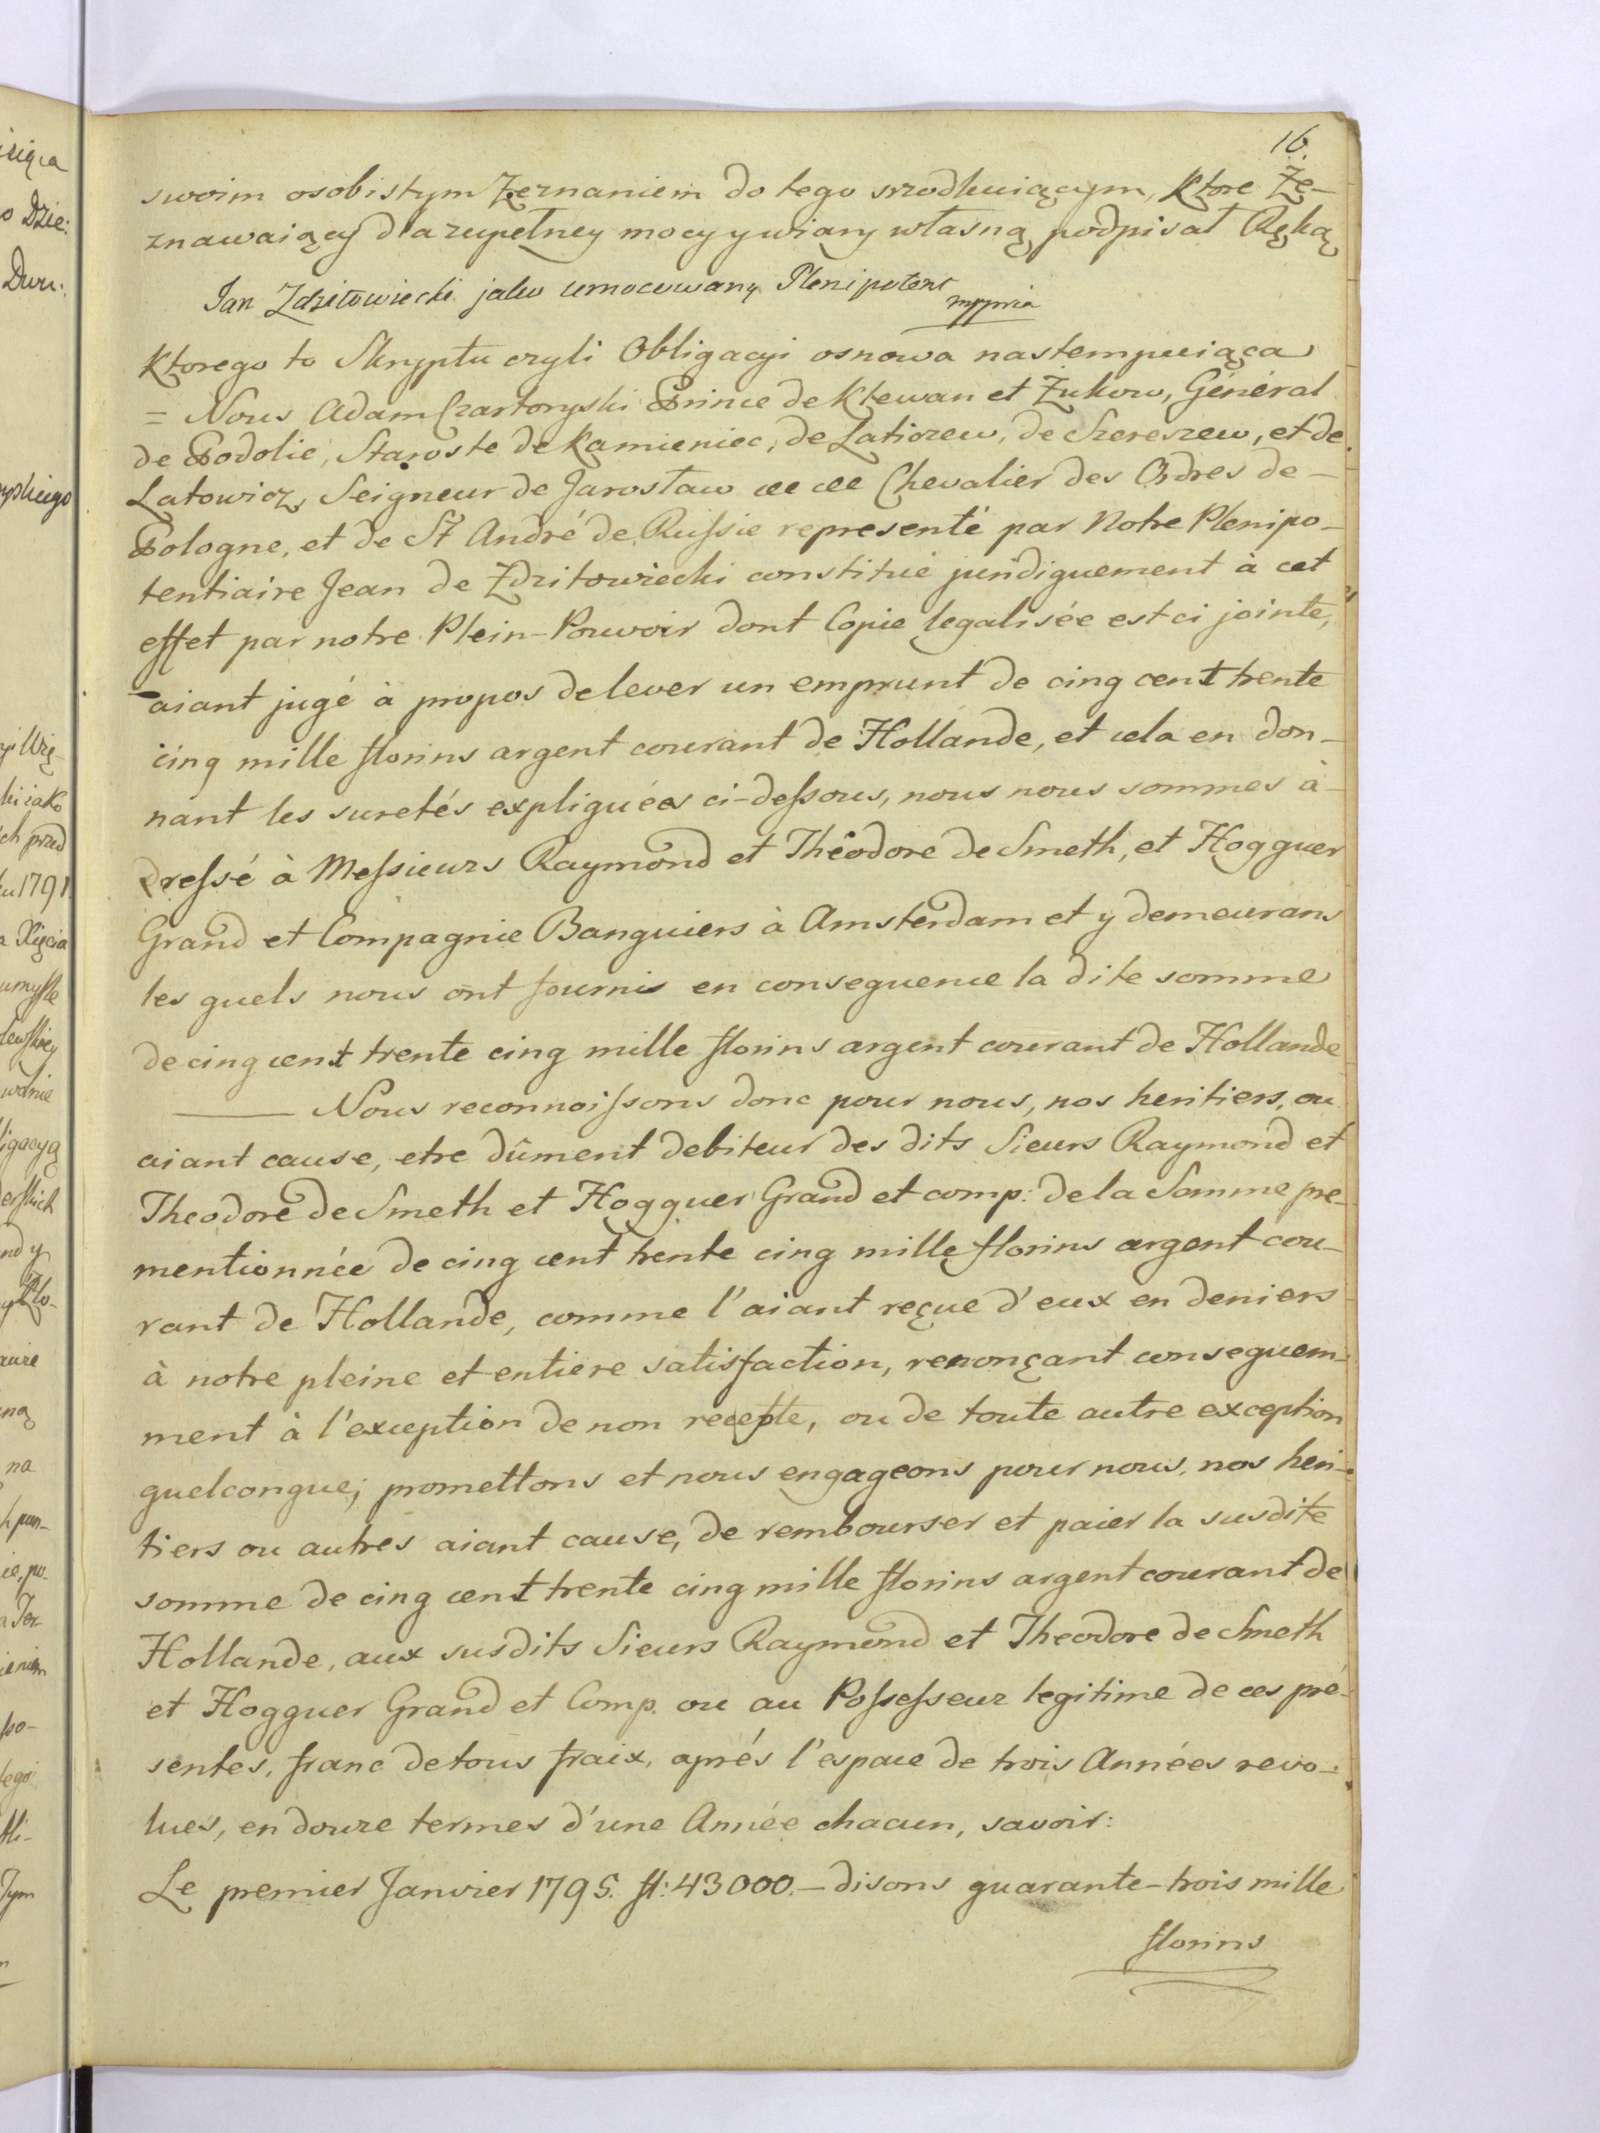 16.
swoim osobistym Zeznaniem do tego srzodkuiącym, Ktore Ze-
znawaiący dla zupełney mocy y wiary własną podpisał Ręką
Jan Zdzitowiecki jako umocowany Plenipotent
mppria
Ktorego to Skryptu czyli Obligacyi osnowa nastempuiąca
= Nous Adam Czartoryski Prince de Klewan et Żukow, Général
de Podolie, Staroste de Kamieniec, de Latiozew, de Szereszew, et de
Latowicz, Seigneur de Jarosław &c &c Chevalier des Ordres de-
Pologne, et de St André de Russie representé par Notre Plenipo-
tentiaire Jean de Zdzitowiecki constitué juridiquement à cet
effet par notre Plein-Pouvoir dont Copie legalisée est ci jointe,
aiant jugé à propos de lever un emprunt de cinq cent trente
cinq mille florins argent courant de Hollande, et cela en don-
nant les suretés expliquées ci-dessous, nous nous sommes à-
dressé à Messieurs Raymond et Théodore de Smeth, et Hogguer
Grand et Compagnie Banquiers à Amsterdam et y demeurans
les quels nous ont fournis en consequence la dite somme
de cinq cent trente cinq mille florins argent courant de Hollande
Nous reconnoissons donc pour nous, nos heritiers, ou
aiant cause, etre dûment debiteur des dits Sieurs Raymond et
Theodore de Smeth et Hogguer Grand et comp: de la Somme pre-
mentionnée de cinq cent trente cinq mille florins argent cou-
rant de Hollande, comme l'aiant reçue d'eux en deniers
à notre pleine et entiere satisfaction, renonçant consequem-
ment à l'exception de non recepte, ou de toute autre exception
quelconque; promettons et nous engageons pour nous, nos heri-
tiers ou autres aiant cause, de rembourser et paier la susdite
somme de cinq cent trente cinq mille florins argent courant de
Hollande, aux susdits Sieurs Raymond et Theodore de Smeth
et Hogguer Grand et Comp. ou au Possesseur legitime de ces pré-
sentes, franc de tous fraix, aprés l'espace de trois Années revo-
lues, en douze termes d'une Année chacun, savoir:
Le premier Janvier 1795. fl: 43000.- disons quarante-trois mille
florins